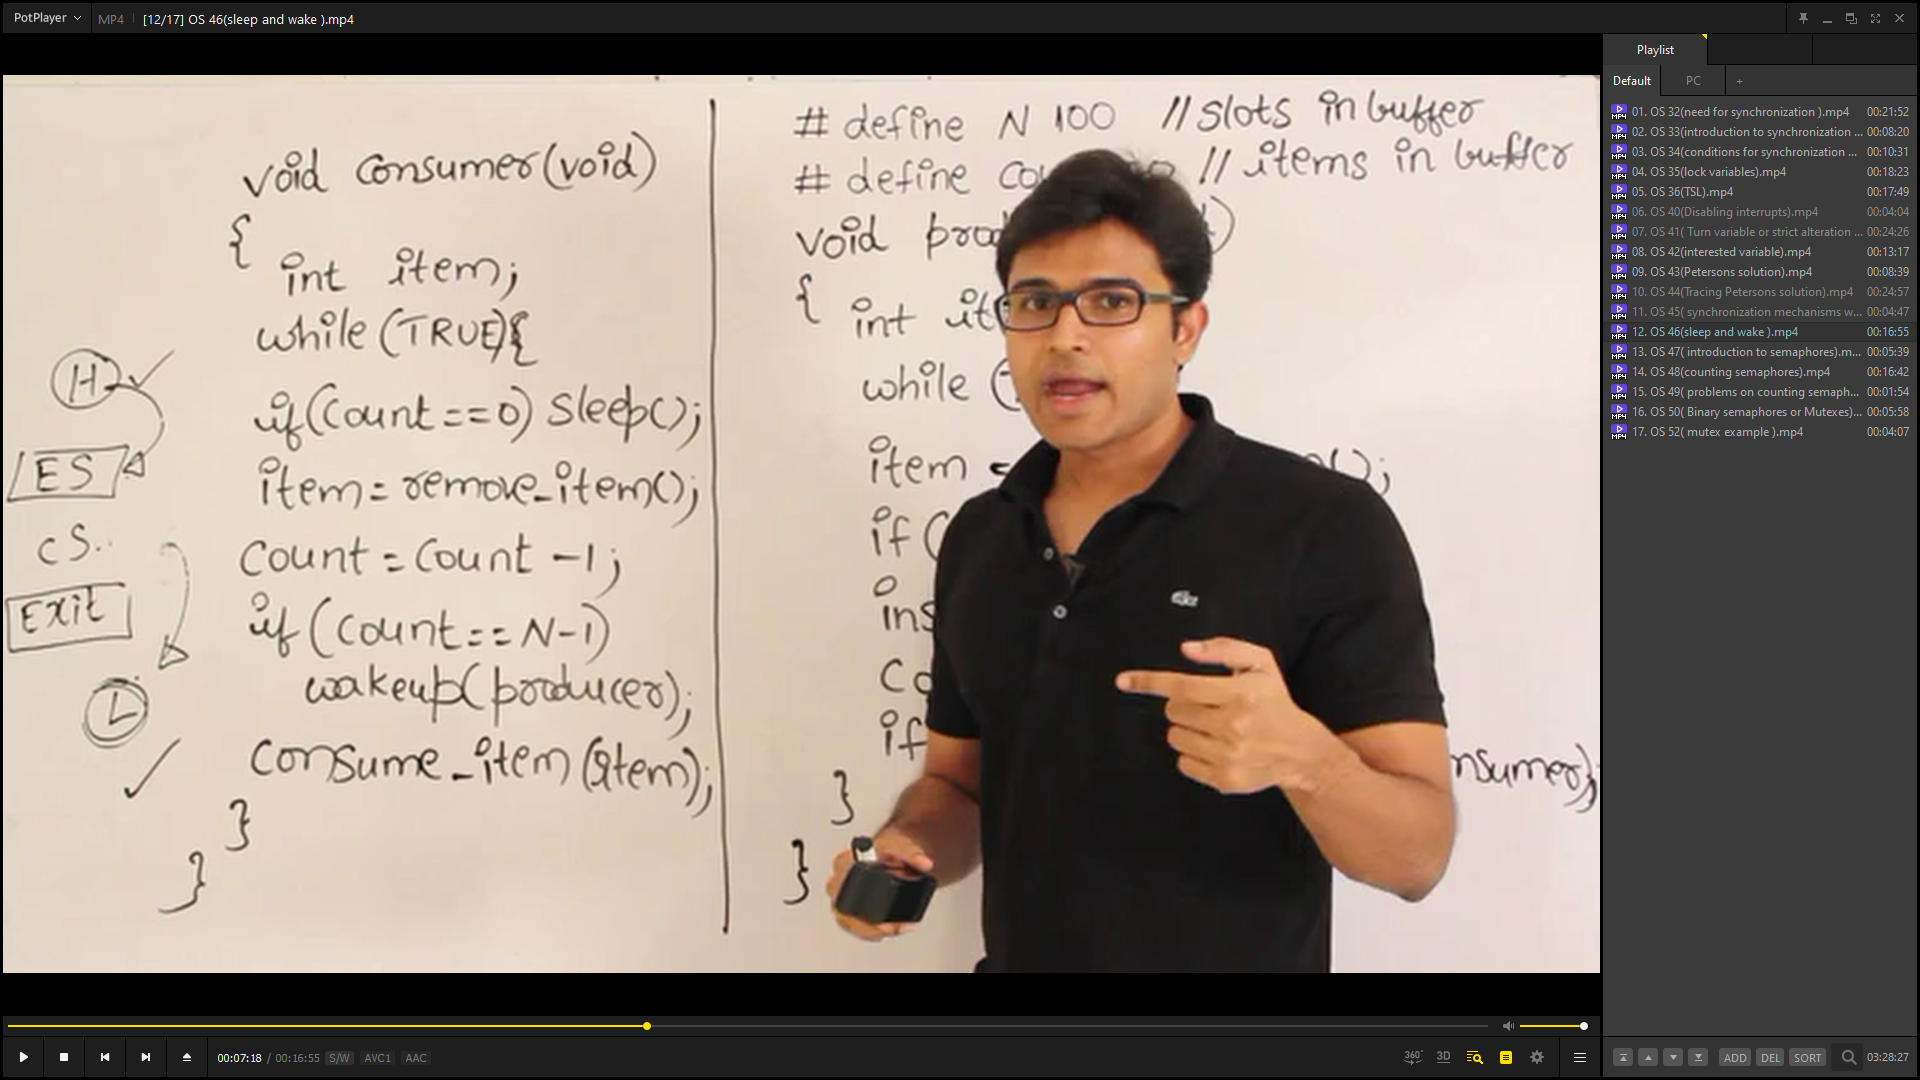 PotPlayer
MP4
[12/17] OS 46(sleep and wake ).mp4
void consumer(void)
{
int item;
while (TRUE){
if(Count==0) Sleep();
item=remove_item();
Count = Count -1;
if (Count == N-1)
wakeup(producer);
Consume_item (item);
}
}
H
ES
CS.
Exit
L
# define N 100 // slots in buffer
# define // items in buffer
void
{
int
while (
item =
();
if (
if
}
}
00:07:18 / 00:16:55 S/W AVC1 AAC
360°
3D
Playlist
Default PC +
01. OS 32(need for synchronization ).mp4 00:21:52
02. OS 33(introduction to synchronization ... 00:08:20
03. OS 34(conditions for synchronization ... 00:10:31
04. OS 35(lock variables).mp4 00:18:23
05. OS 36(TSL).mp4 00:17:49
06. OS 40(Disabling interrupts).mp4 00:04:04
07. OS 41( Turn variable or strict alteration ... 00:24:26
08. OS 42(interested variable).mp4 00:13:17
09. OS 43(Petersons solution).mp4 00:08:39
10. OS 44(Tracing Petersons solution).mp4 00:24:57
11. OS 45( synchronization mechanisms w... 00:04:47
12. OS 46(sleep and wake ).mp4 00:16:55
13. OS 47( introduction to semaphores).m... 00:05:39
14. OS 48(counting semaphores).mp4 00:16:42
15. OS 49( problems on counting semaph... 00:01:54
16. OS 50( Binary semaphores or Mutexes)... 00:05:58
17. OS 52( mutex example ).mp4 00:04:07
ADD DEL SORT 03:28:27